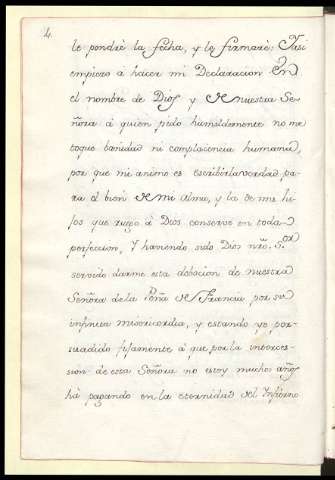 4
le pondrè la fecha, y lo firmarè: Y asi
empiezo á hacer mi Declaracion En
el nombre de Dios y de nuestra Se-
ñora á quien pido humildemente no me
toque banidad ni complacencia humana,
por que mi animo es escribir la verdad pa-
ra el bien de mi alma, y la de mis hi-
jos que ruego á Dios conserve en toda
perfeccion, Y haviendo sido Dios nrõ. S.or
servido darme esta debocion de nuestra
Señora de la Peña de Francia, por su
infinita misericordia, y estando yo per-
suadido fijamente á que por la interces-
sion de esta Señora no estoy muchos años
hà pagando en la eternidad del Infierno